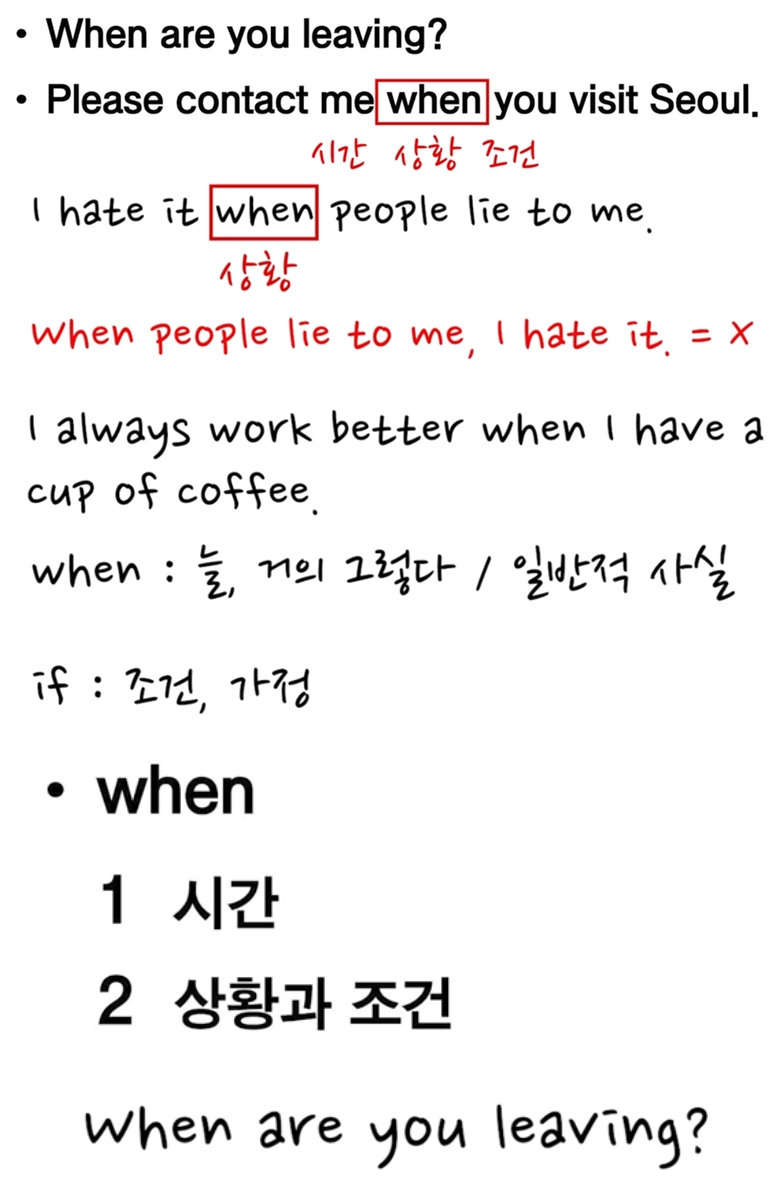 • When are you leaving?
• Please contact me when you visit Seoul.
시간 상황 조건
I hate it when people lie to me.
상황
When people lie to me, I hate it. = X
I always work better when I have a
cup of coffee.
when : 늘, 거의 그렇다 / 일반적 사실
if : 조건, 가정
• when
1 시간
2 상황과 조건
When are you leaving?